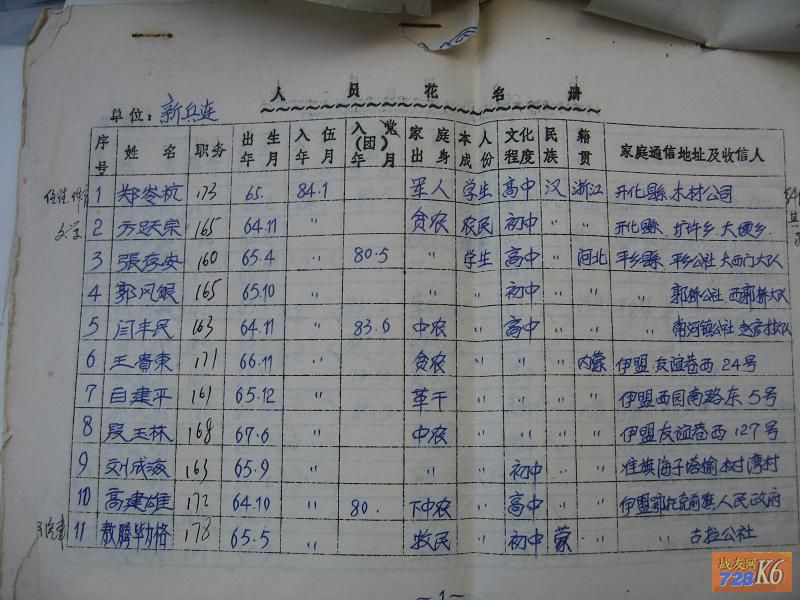 人员花名册
单位：新兵连
序号 姓名 职务 出生年月 入伍年月 入党(团)年月 家庭出身 本人成份 文化程度 民族 籍贯 家庭通信地址及收信人
1 郑岑杭 173 65. 84.1 军人 学生 高中 汉 浙江 开化縣.木材公司
文学 2 165 64.11 〃 贫农 农民 初中 〃 〃 开化縣.
3 張存安 160 65.4 〃 80.5 〃 学生 高中 〃 河北 平乡縣.平乡公社大西门大队
4 郭风銀 165 65.10 〃 〃 〃 初中 〃 〃 〃 郭桥公社 西郭桥大队
5 闫丰民 163 64.11 〃 83.6 中农 〃 高中 〃 〃 〃 南河镇公社
6 王貴東 171 66.11 〃 贫农 〃 〃 〃 内蒙 伊盟.友谊巷西24号
7 白建平 161 65.12 〃 革干 〃 〃 〃 〃 伊盟西园南路东5号
8 段玉林 168 67.6 〃 中农 〃 〃 〃 〃 伊盟友谊巷西127号
9 刘成海 163 65.9 〃 〃 〃 初中 〃 〃 准旗海子塔榆树湾村
10 高建雄 172 64.10 〃 80. 下中农 〃 高中 〃 〃 伊盟鄂托克前旗人民政府
11 敖腾华力格 178 65.5 〃 牧民 〃 初中 蒙 〃 〃 古拉公社
~1~
战友网
728K6